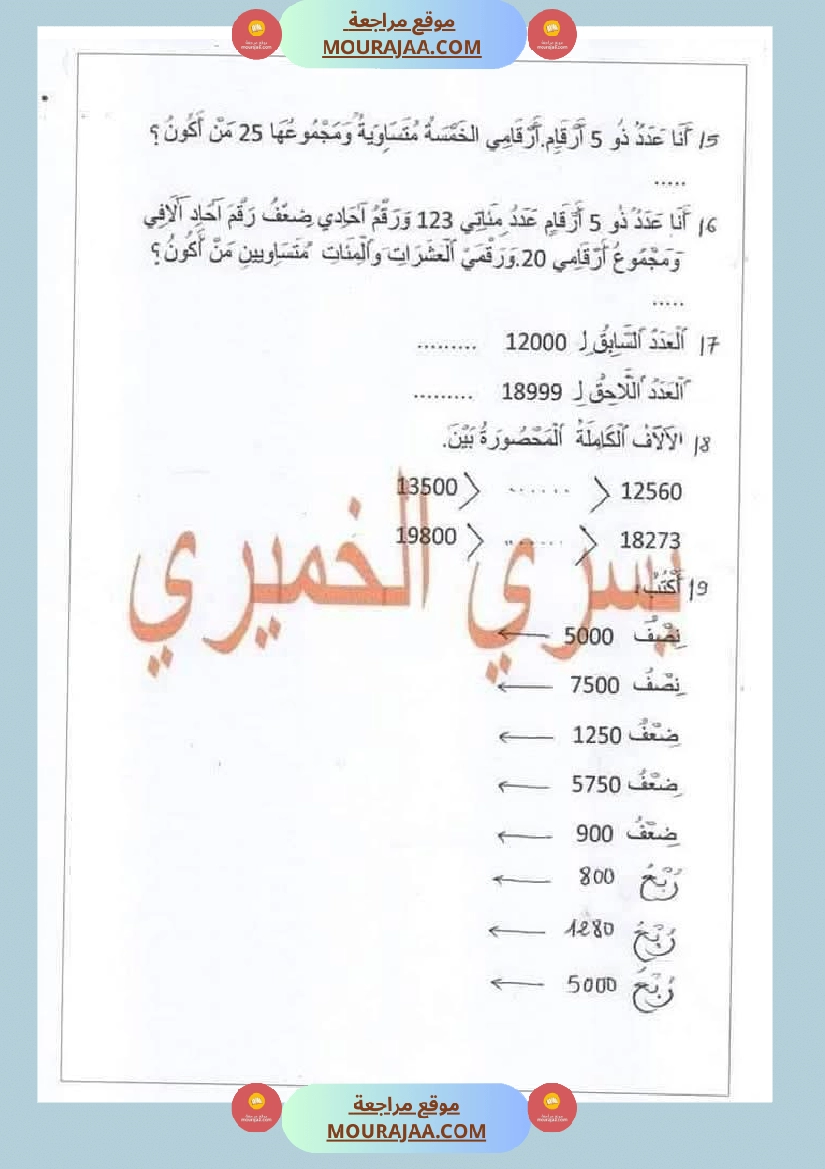 موقع مراجعة
MOURAJAA.COM
15/ أَنَا عَدَدٌ ذُو 5 أَرْقَامٍ.أَرْقَامِي الخَمْسَةُ مُتَسَاوِيَةٌ وَمَجْمُوعُهَا 25 مَنْ أَكُونُ؟
.....
16/ أَنَا عَدَدٌ ذُو 5 أَرْقَامٍ عَدَدُ مِئَاتِي 123 وَرَقْمُ آحَادِي ضِعْفُ رَقْمِ آحَادِ آلَافِي
وَمَجْمُوعُ أَرْقَامِي 20.وَرَقْمَيْ الْعَشَرَاتِ وَالْمِئَاتِ مُتَسَاوِيينِ مَنْ أَكُونُ؟
.....
17/ اَلْعَدَدُ السَّابِقُ لِ 12000 .........
اَلْعَدَدُ اللَّاحِقُ لِ 18999 .........
18/ الآلَافُ الْكَامِلَةُ الْمَحْصُورَةُ بَيْنَ.
12560 〉 ....... 〉 13500
18273 〉 ....... 〉 19800
19/ أَكْتُبُ:
نِصْفُ 5000 ←
نِصْفُ 7500 ←
ضِعْفُ 1250 ←
ضِعْفُ 5750 ←
ضِعْفُ 900 ←
رُبْعُ 800 ←
رُبْعُ 1280 ←
رُبْعُ 5000 ←
يسري الخميري
موقع مراجعة
MOURAJAA.COM